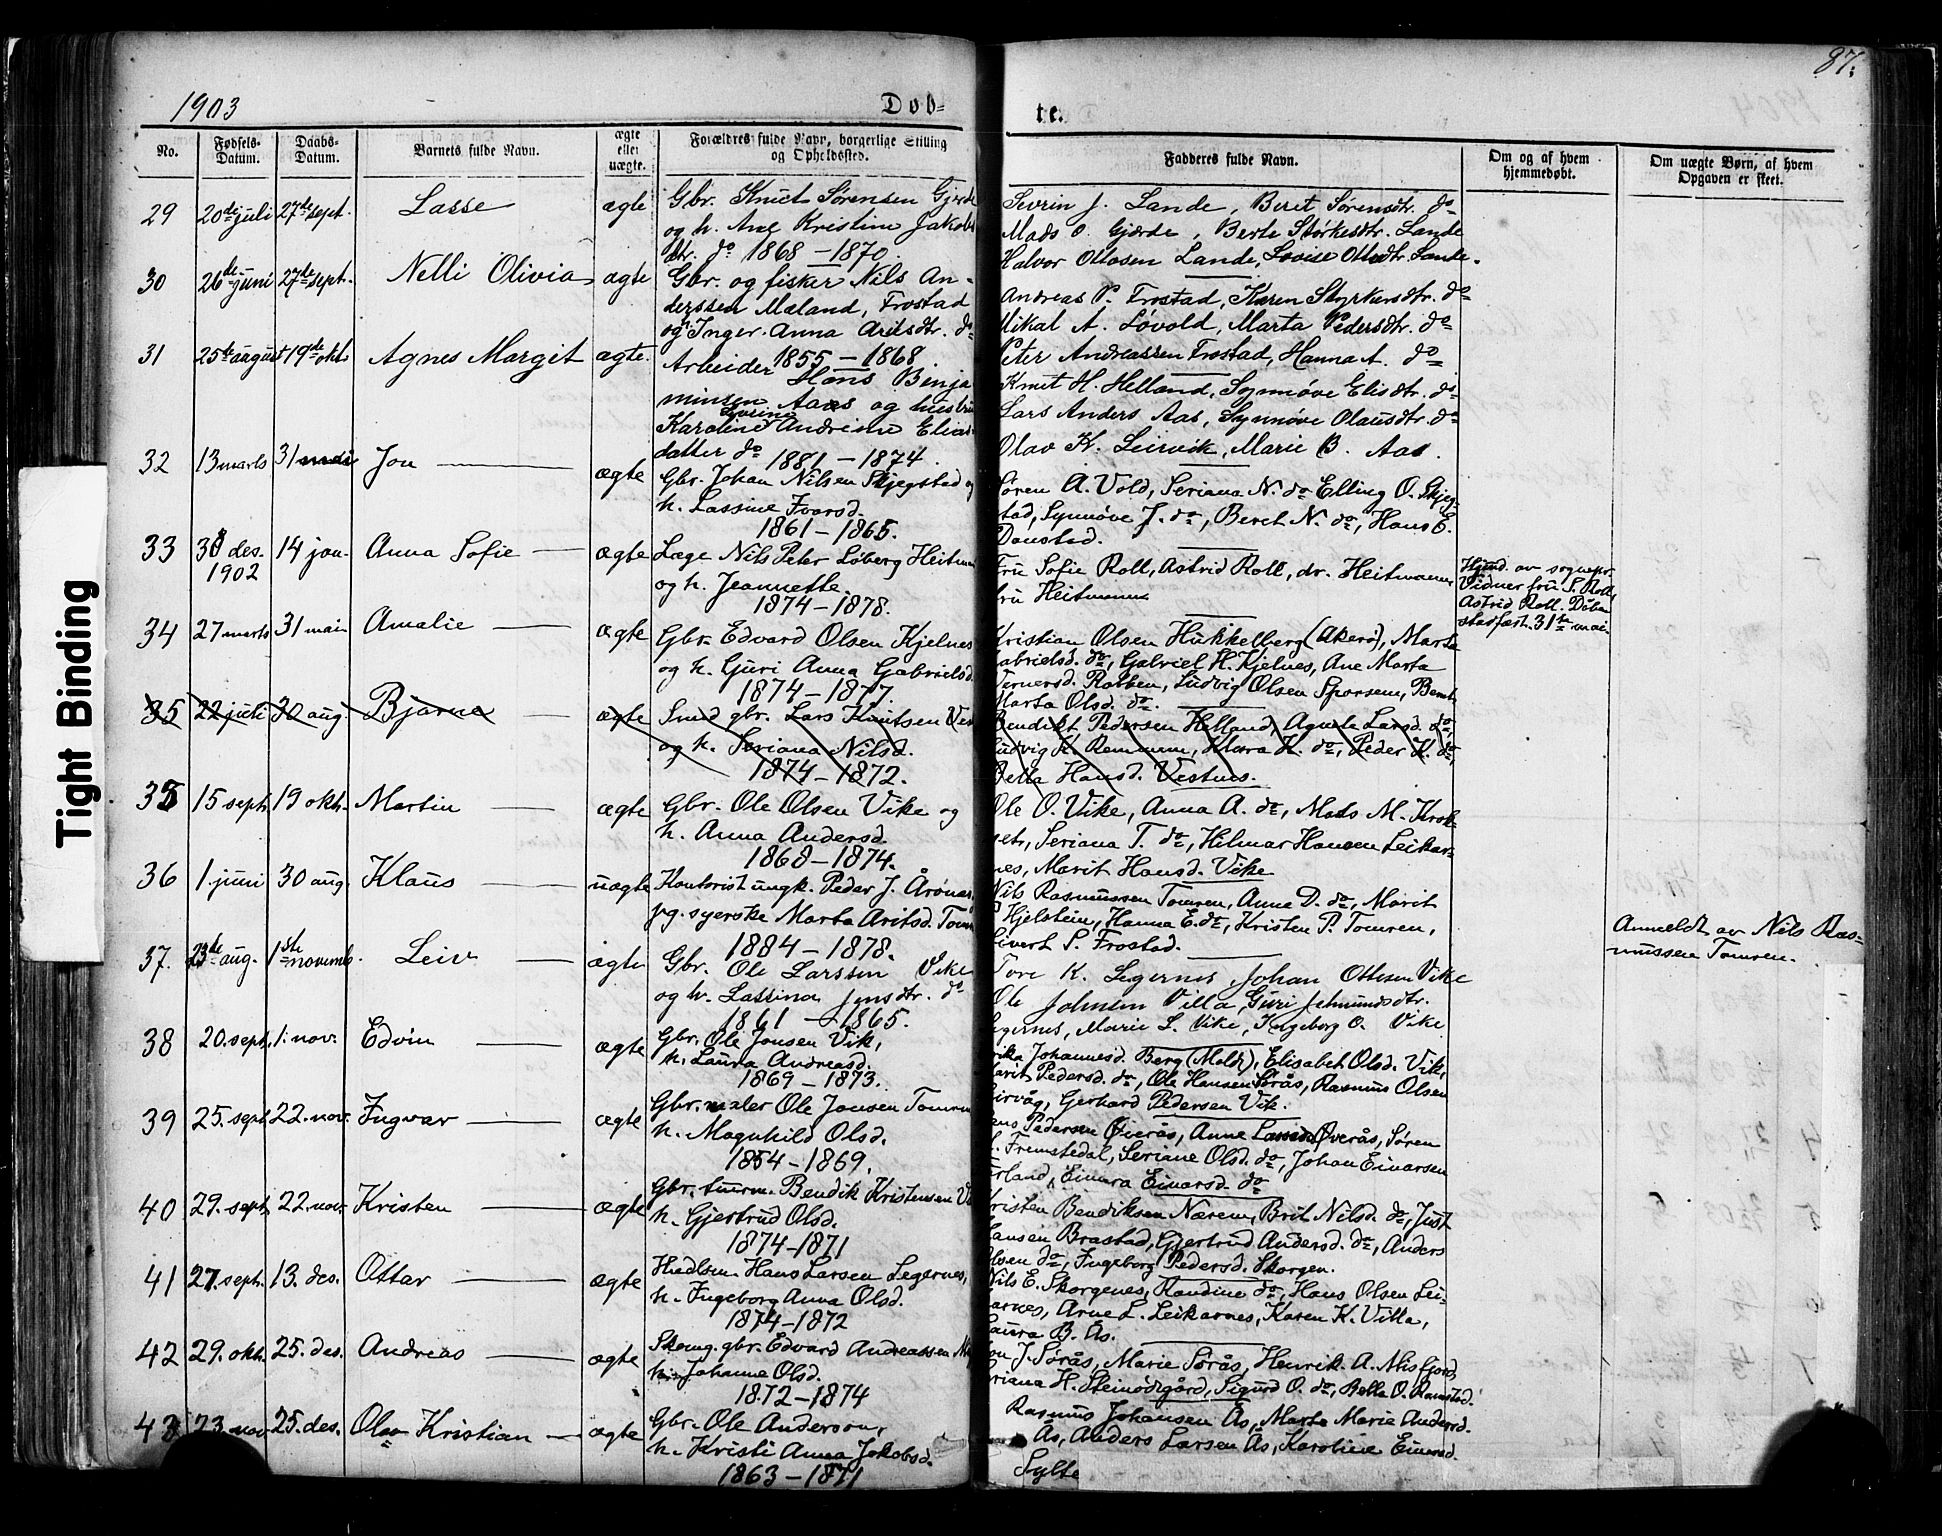 87.
1903
Døb=
te.
No.
Fødsels-Datum.
Daabs-Datum.
Barnets fulde Navn.
ægte eller uægte.
Forældres fulde Navn, borgerlige Stilling og Opholdssted.
Fadderes fulde Navn.
Om og af hvem hjemmedøbt.
Om uægte Børn, af hvem Opgaven er skeet.
Tight Binding
29 20de juli 27de sept. Lasse ægte Gbr. Knut Sørensen Gjerde
og h. Ane Kristine Jakobs
dtr. do 1868 – 1870.
Sevrin J. Lande, Beret Sørensdtr. do
Mads O. Gjærde, Berte Størkesdtr. Lande
Halvor Ottosen Lande, Lovise Ottodtr. Lande.
30 26de juni 27de sept. Nelli Olivia ægte Gbr. og fisker Nils An-
derssen Maland, Frostad
og Inger Anna Aritsdtr. do
1855 – 1868
Andreas P. Frostad, Karen Styrkersdtr. do
Mikal A. Løvold, Marta Pedersdtr. do
Peter Andreassen Frostad, Hanna A. do
31 25de august 19de okt. Agnes Margit ægte. Arbeider Hans Binja
minsen Aas og hustru
Karoline Andrine Elias-
datter do 1881 – 1874.
Knut H. Helland, Synnøve Elisdtr. do
Lars Anders Aas, Synnøve Olausdtr. do
Olav K. Leirvik, Marie B. Aas.
32 13 marts 31 mai Jon ægte Gbr. Johan Nilsen Skjegstad og
h. Lassine Ivarsd.
1861 – 1865.
Søren A. Vold, Seriana N. do Elling O. Skjeg-
stad, Synnøve J. do, Beret N. do, Hans E.
Daustad.
33 30 des. 1902 14 jan. Anna Sofie ægte Læge Nils Peter Løberg Heitmann
og h. Jeannette.
1874 – 1878.
Fru Sofie Roll, Astrid Roll, dr. Heitmann
fru Heitmann
Hjmd. av sognepr.
Vidner fru S. Roll,
Astrid Roll. Dåben
stadfæst. 31te mai.
34 27 marts 31 mai Amalie ægte Gbr. Edvard Olsen Kjelnes
og h. Guri Anna Gabrielsd.
1874 – 1877.
Kristian Olsen Hukkelberg (Akerø), Marta
Gabrielsd. do, Gabriel H. Kjelnes, Ane Marta
Vernersd. Rotben, Ludvig Olsen Sporsem, Bernt
Marta Olsd. do.
35 22 juli 30 aug. Bjarne ægte Smed gbr. Lars Knutsen Ves
og h. Seriana Nilsd.
1874 – 1872.
Bendikt Pedersen Helland, Agnete Larsd. do,
Ludvig K. Remmem, Klara K. do, Peder K. do,
Bella Hansd. Vestnes.
35 15 sept. 19 okt. Martin ægte Gbr. Ole Olsen Vike og
h. Anna Andersd.
1868 – 1874.
Ole O. Vike, Anna A. do, Mads M. Krok-
setr, Seriana T. do, Hilmar Hansen Leikar-
nes, Marit Hansd. Vike
36 1. juni 30 aug. Klaus uægte Kontorist ungk. Peder J. Årønes,
pg. syerske Marta Aritsd. Tomr
1884 – 1878.
Nils Rasmussen Tomren, Anne D. do, Marit
Hjelstein, Hanna E. do, Kristen P. Tomren,
Sivert S. Frostad.
Anmeldt av Nils Ras-
mussen Tomren.
37. 23de aug. 1ste novemb. Leiv ægte Gbr. Ole Larssen Vike
og h. Lassina Jensdtr. do
1861 – 1865.
Tore K. Legernes Johan Ottesen Vike
Ole Johnsen Villa, Guri Jetmundsdtr.
Legernes, Marie L. Vike, Ingeborg O. Vike
38 20. sept. 1. nov. Edvin ægte Gbr. Ole Jonsen Vik,
h. Laura Andreasd.
1869 – 1873.
rika Johannesd. Berg (Molde), Elisabet Olsd. Vik,
Marit Pedersd. do, Ole Hansen Sørås, Rasmus Olsen
Leirvåg, Gerhard Pedersen Vik.
39 25. sept. 22. nov. Ingvar ægte Gbr. maler Ole Jonsen Tomren
h. Magnhild Olsd.
1864 – 1869.
Jens Pedersen Øverås, Anne Larsd. Øverås, Søren
Fremstedal, Seriane Olsd. do, Johan Einarsen
Erland, Einara Einarsd. do
40 29. sept. 22. nov. Kristen ægte Gbr. tømrm. Bendik Kristensen
h. Gjertrud Olsd.
1874-1871
Kristen Bendiksen Nærem, Brit Nilsd. do, Just
Hansen Brastad, Gjertrud Andersd. do, Anders
Olsen do, Ingeborg Pedersd. Skorgen.
41 27. sept. 13. des. Ottar ægte Hndlsm. Hans Larsen Legernes,
h. Ingeborg Anna Olsd.
1874-1872
Nils E. Skorgenes, Randine do, Hans Olsen Lei-
karnes, Arne L. Leikarnes, Karen K. Villa,
Laura B. Ås.
42 29. okt. 25. des. Andreas ægte Skomg. gbr. Edvard Andreassen
h. Johanne Olsd.
1872 – 1874
Jon J. Sørås, Marie Sørås, Henrik A. Misfjord,
Seriana H. Steinødegård, Sigurd O. do, Bella O. Ramstad.
43 23. nov. 25. des. Olav Kristian ægte Gbr. Ole Anderson,
h. Kristi Anna Jakobsd.
1863 – 1871
Rasmus Johansen Ås, Marta Marie Andersd.
Ås, Anders Larsen Ås, Karoline Einarsd.
Sylte